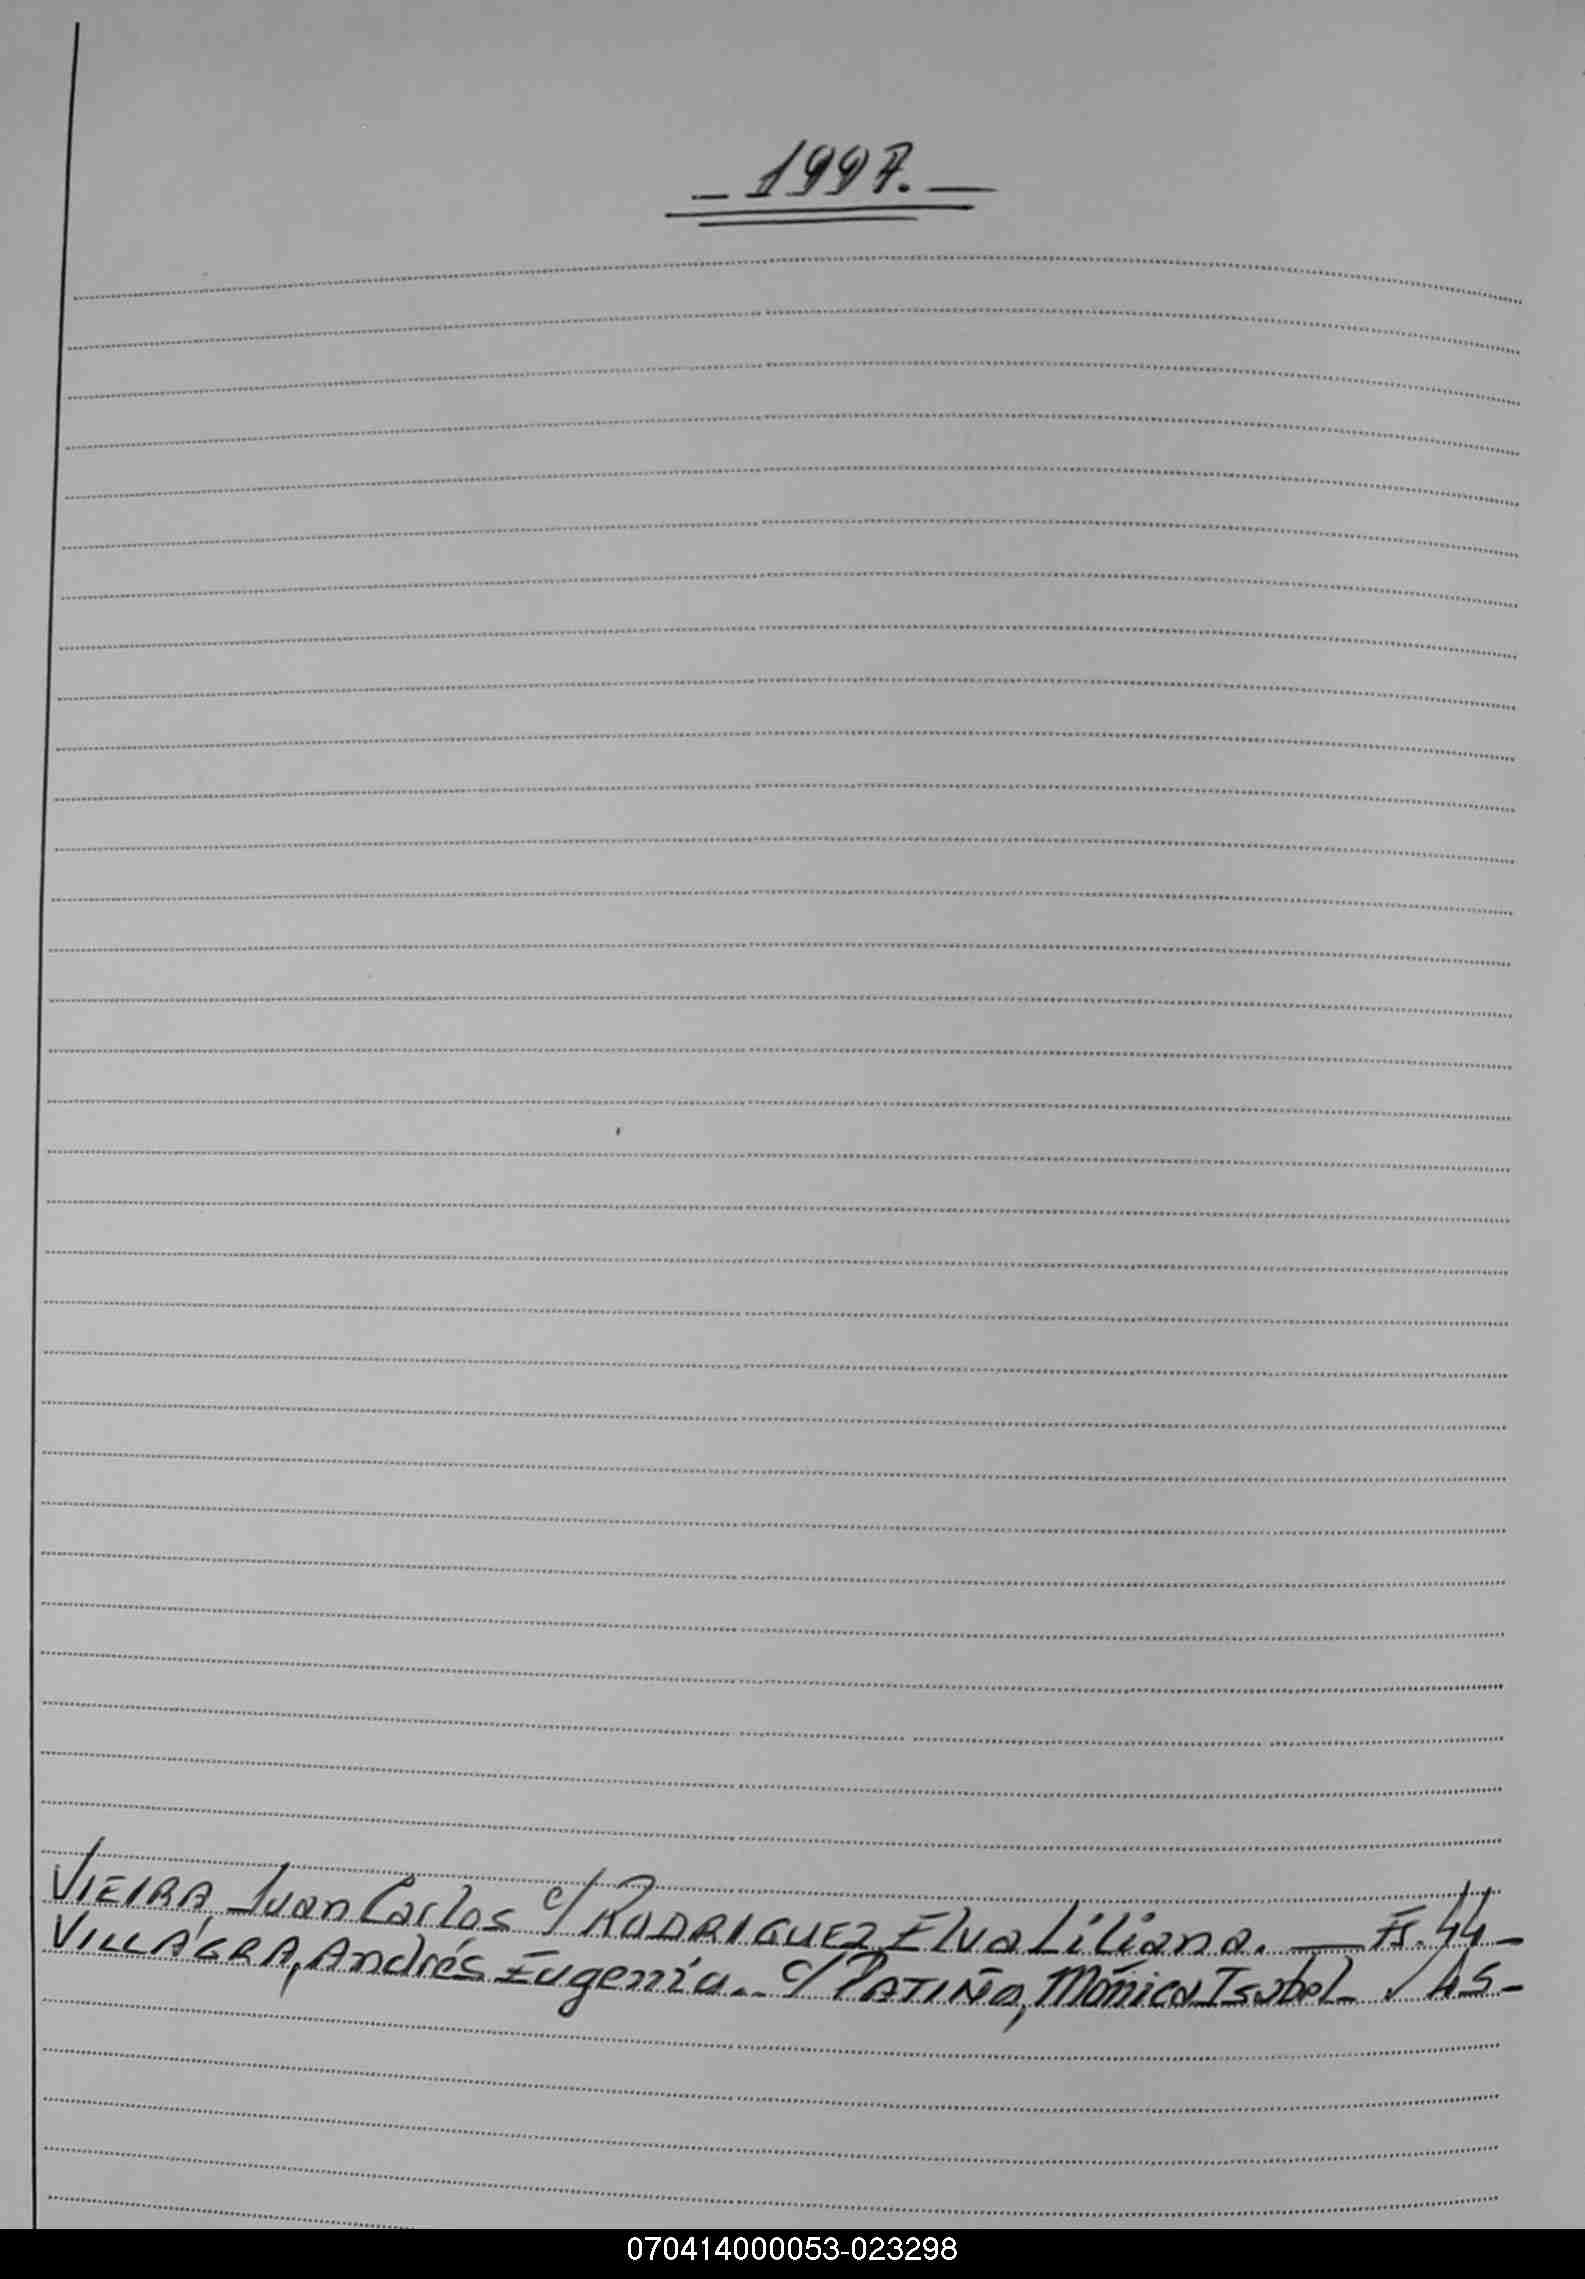 _ 1997. _
VIEIRA, Juan Carlos c/ RODRIGUEZ Elva Liliana. — Fs. 44 -
VILLAGRA, Andrés Eugenio.. c/ PATIÑO, Mónica Isabel - / 45 -
070414000053-023298